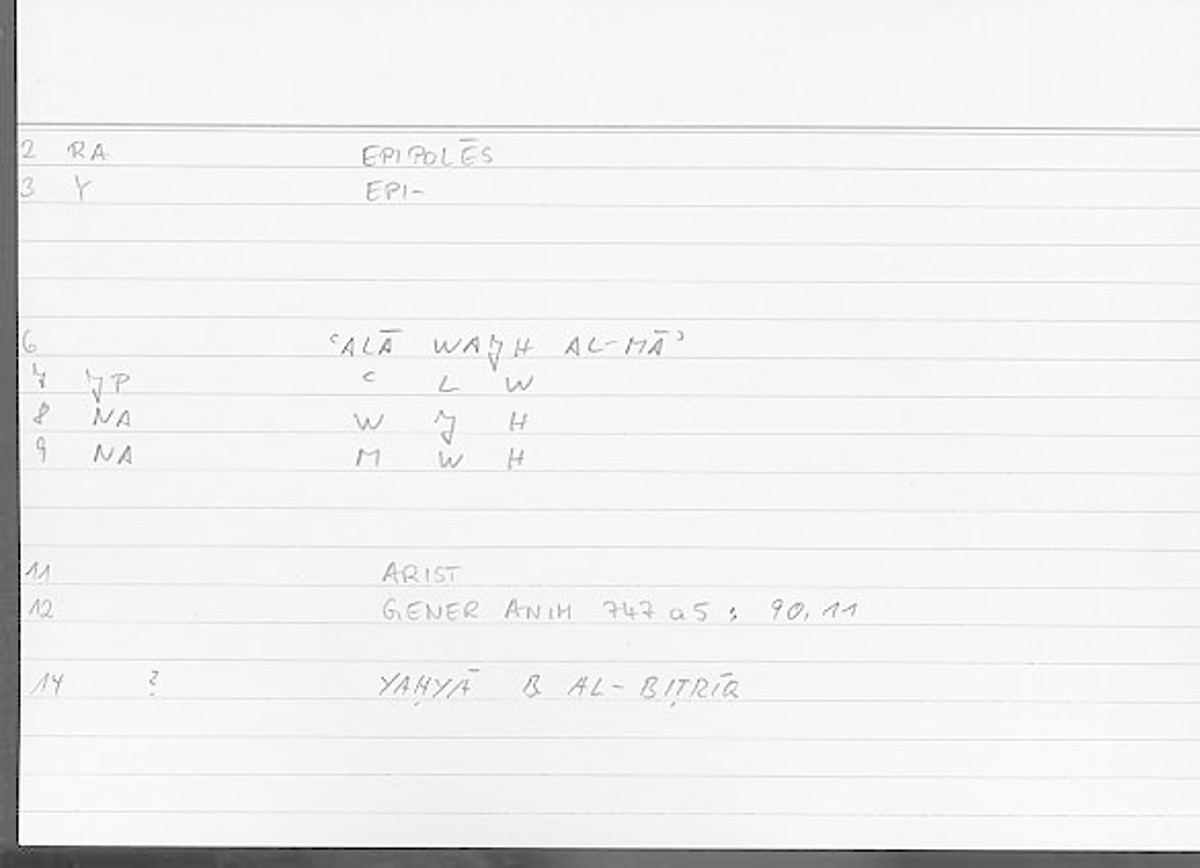 2 RA EPIPOLĒS
3 Y EPI-
6 ʿALĀ WAJH AL-MĀʾ
7 JP ʿ L W
8 NA W J H
9 NA M W H
11 ARIST
12 GENER ANIM 747 a 5 ; 90,11
14 ? YAḤYĀ B AL-BIṬRĪQ